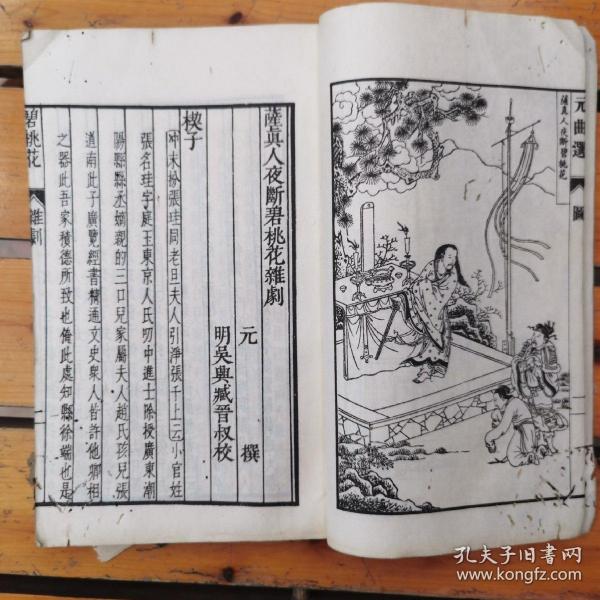 元曲選 圖
薩真人夜斷碧桃花
薩真人夜斷碧桃花雜劇
元 撰
明吳興臧晉叔校
楔子
冲末扮張珪同老旦夫人引淨張千上云小官姓
張名珪字庭玉東京人氏叨中進士除授廣東潮
陽縣縣丞嫡親的三口兒家屬夫人趙氏孩兒張
道南此子廣覽經書精通文史衆人皆許他卿相
之器此吾家積德所致也俺此處知縣徐端也是
碧桃花 雜劇 一
孔夫子旧书网
www.kongfz.com